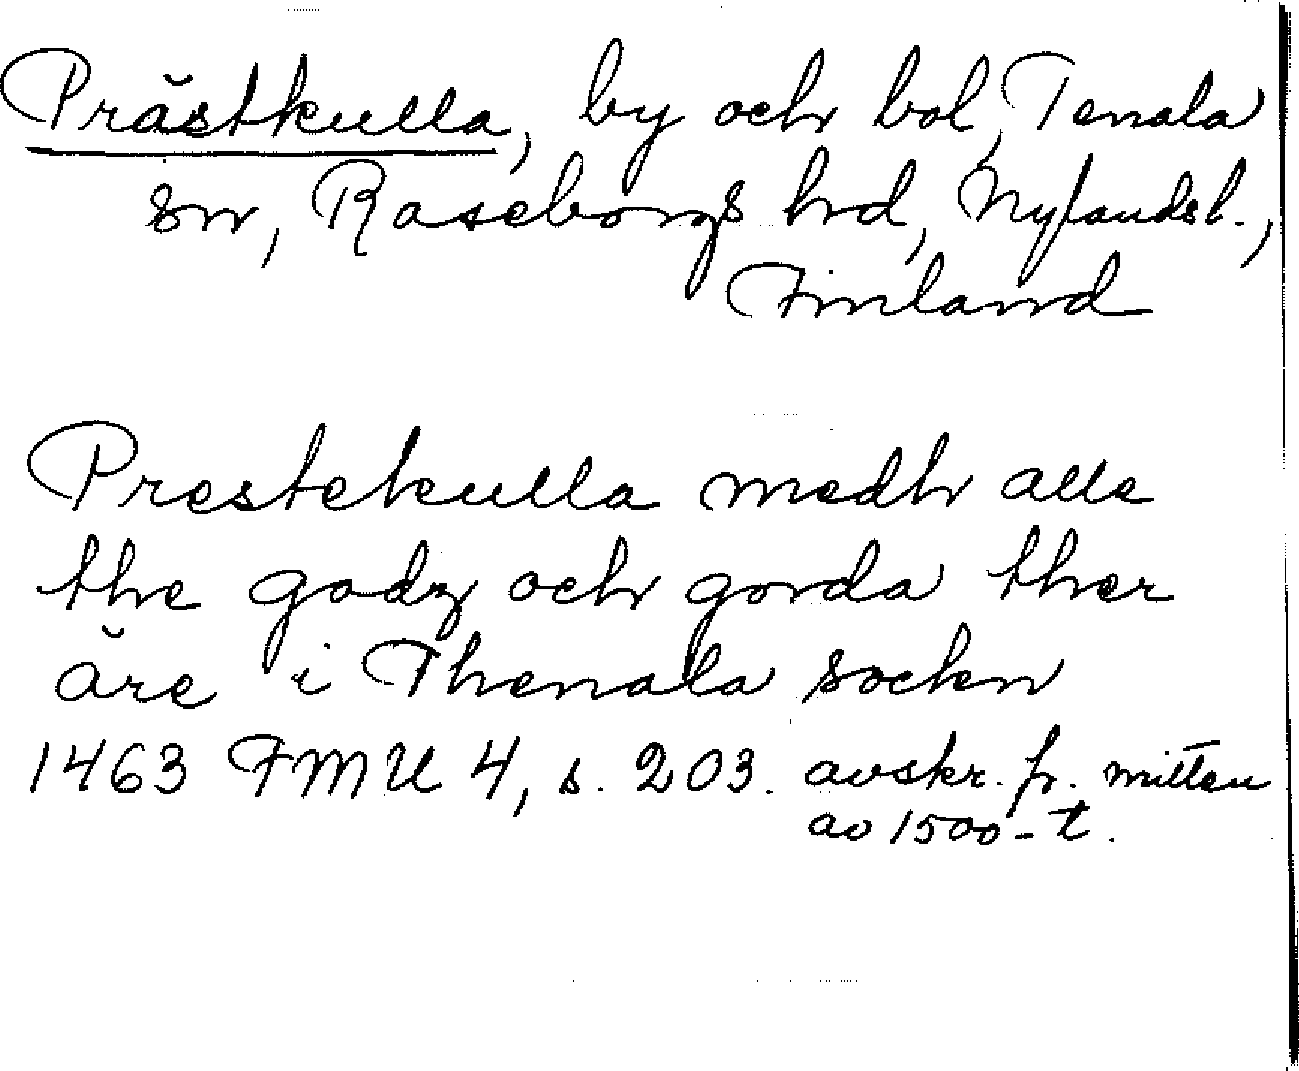 Prästkulla, by och bol, Tenala
sn, Raseborgs hrd, Nylandsl.,
Finland
Prestekulla medh alle
the godz och gorda ther
äre i Thenala sockn
1463 FMU 4, s. 203. avskr. fr. mitten
av 1500-t.